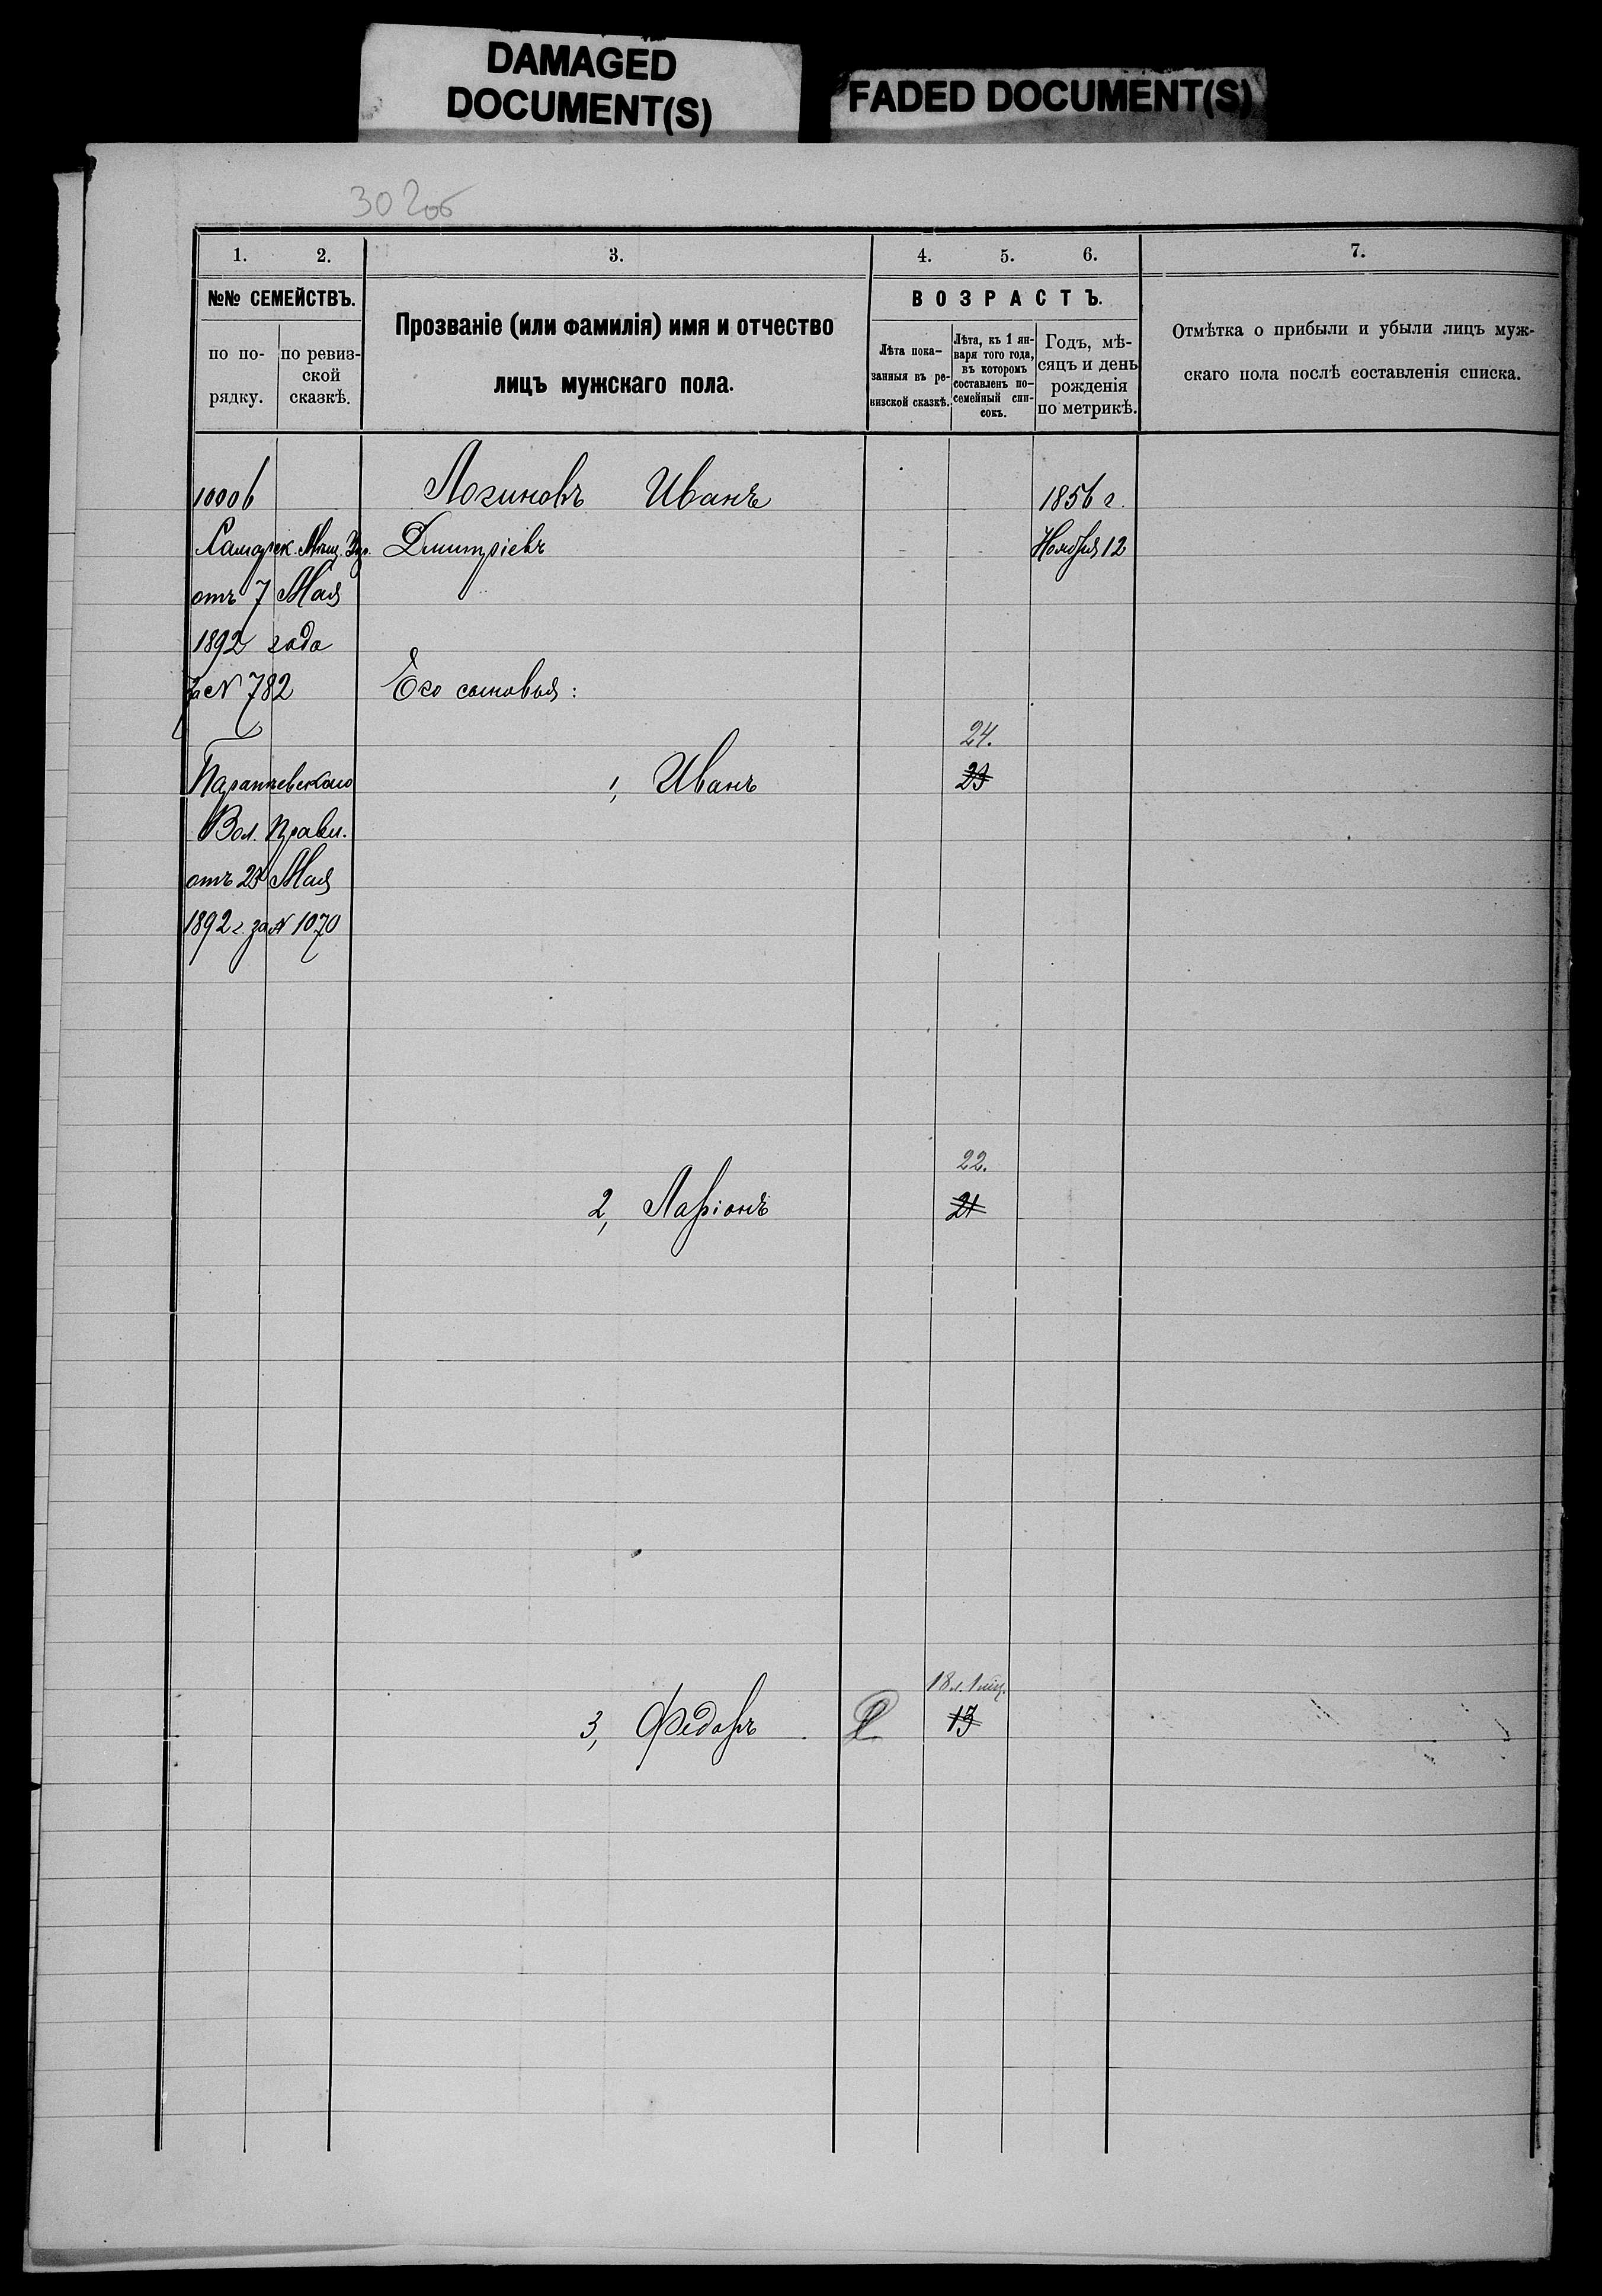 DAMAGED
DOCUMENT(S)
FADED DOCUMENT(S)
302об
1. 2. 3. 4. 5. 6. 7.
№№ СЕМЕЙСТВЪ.
по по-
рядку.
по ревиз-
ской
сказкѣ.
Прозваніе (или фамилія) имя и отчество
лицъ мужскаго пола.
ВОЗРАСТЪ.
Лѣта пока-
занныя въ ре-
визской сказкѣ.
Лѣта, къ 1 ян-
варя того года,
въ которомъ
составленъ по-
семейный спи-
сокъ.
Годъ, мѣ-
сяцъ и день
рожденія
по метрикѣ.
Отмѣтка о прибыли и убыли лицъ муж-
скаго пола послѣ составленія списка.
10006 Логиновъ Иванъ 1856 г.
Самарск. Мѣщ. Упр. Дмитріевъ Ноября 12
отъ 7 Мая
1892 года
за № 782 Его сыновья:
24.
1, Иванъ 23
Вол. Правл.
отъ 27 Мая
1892 г. за № 1070
22.
2, Ларіонъ 21
18 л. 1 мѣс.
3, Федоръ 13